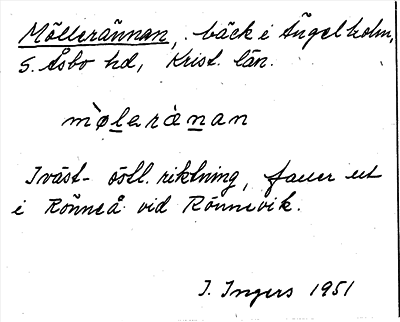 Möllerännan, bäck i Ängelholm,
S. Åsbo hd, Krist. län.
møleränan
I väst- östl. riktning, faller ut
i Rönneå vid Rönnevik.
I. Ingers 1951